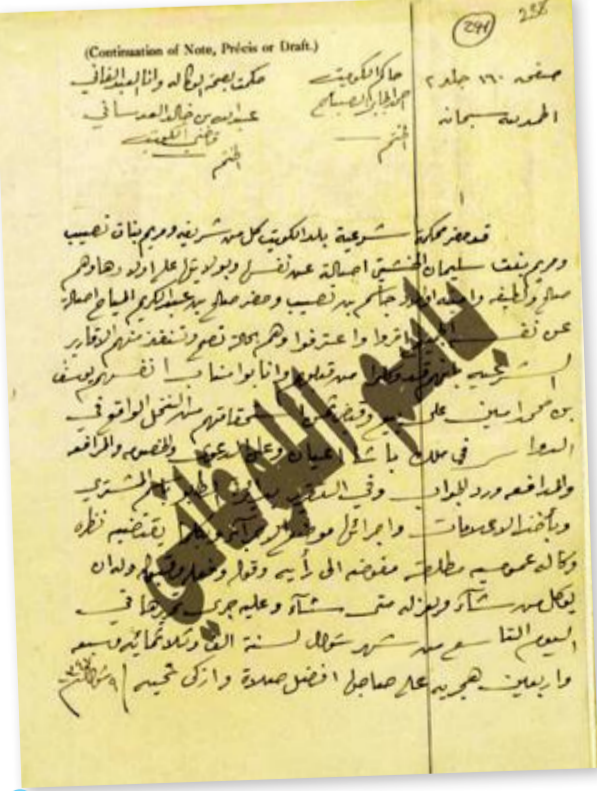 238
241
(Continuation of Note, Précis or Draft.)
صفحه ١٦٠ جلد ٢
الحمد لله سبحانه
حاكم الكويت
احمد الجابر الصباح
الختم
حكمت بصحة الوكاله وانا العبد الفاني
عبدالله بن خالد العدساني
قاضي الكويت
الختم
قد حضر محكمة شرعية بلد الكويت كل من شريفه ومريم بنات نصيب
ومريم بنت سليمان اصالة عن نفسها وبولايتها على اولادها وهم
صالح ولطيفه وامنه اولاد جاسم بن نصيب وحضر صالح بن عبدالكريم المياح اصالة
عن اقروا واعترفوا وهم بحالة تصح وتنفذ منهم الاقارير
الشرعيه بانهم قد وكلوا من قبلهم وانابوا مناب انفسهم يوسف
بن محمد امين على بيع وقبض ثمن استحقاقاتهم من النخل الواقع في
الدواسر في ملك باش اعيان وعلى الدعوى والخصوم والمرافعه
والمدافعه ورد الجواب وفي
وياخذ الاعلامات واجرائها يقتضيه نظره
وكالة عموميه مطلقة مفوضه الى رأيه وقوله وفعله وله ان
يوكل من شاء ويعزله متى شاء وعليه جرى تحريرها في
اليوم التاسع من شهر شوال لسنة الف وثلاثمائه وسبعه
واربعين هجريه على صاحبها افضل صلاة وازكى تحيه